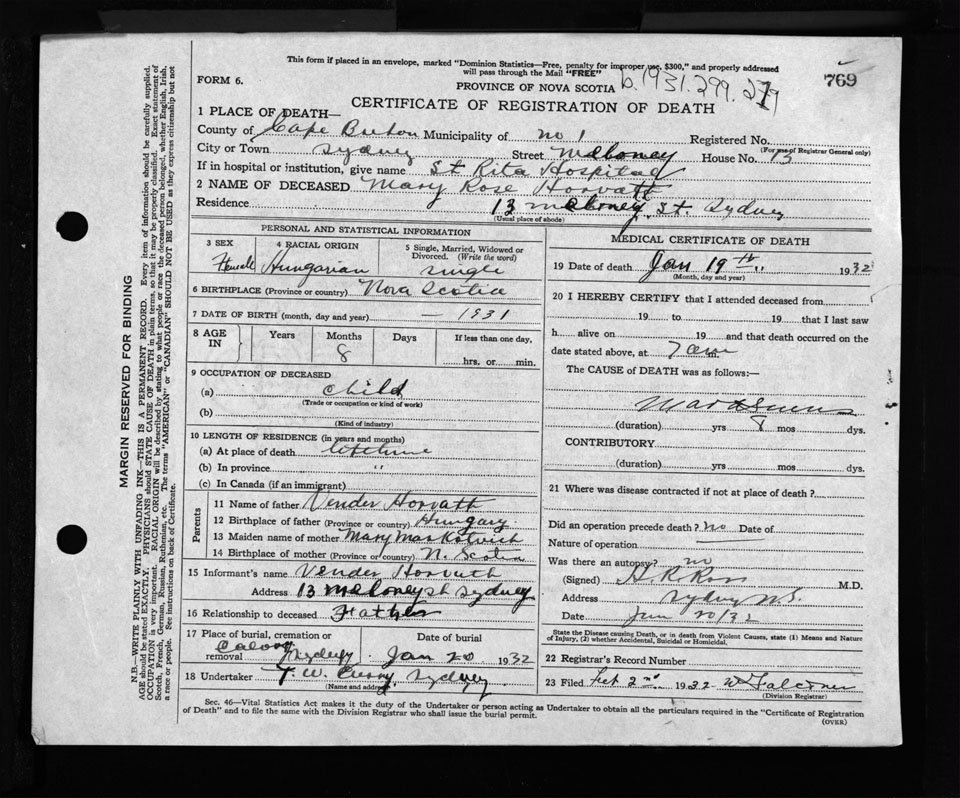 This form if placed in an envelope, marked "Dominion Statistics—Free, penalty for improper use, $300," and properly addressed
will pass through the Mail "FREE"
769
FORM 6.
PROVINCE OF NOVA SCOTIA
b.1931.299.
CERTIFICATE OF REGISTRATION OF DEATH
1 PLACE OF DEATH—
County of Cape Breton Municipality of no 1 Registered No.
(For use of Registrar General only)
City or Town Sydney Street Meloney House No. 13
If in hospital or institution, give name St Rita Hospital
2 NAME OF DECEASED Mary Rose Horvath
Residence 13 Meloney St. Sydney
(Usual place of abode)
PERSONAL AND STATISTICAL INFORMATION
3 SEX Female
4 RACIAL ORIGIN Hungarian
5 Single, Married, Widowed or Divorced. (Write the word) single
6 BIRTHPLACE (Province or country) Nova Scotia
7 DATE OF BIRTH (month, day and year) — 1931
8 AGE IN Years Months 8 Days If less than one day, hrs. or min.
9 OCCUPATION OF DECEASED
(a) child
(Trade or occupation or kind of work)
(b)
(Kind of industry)
10 LENGTH OF RESIDENCE (in years and months)
(a) At place of death lifetime
(b) In province "
(c) In Canada (if an immigrant)
Parents
11 Name of father Vender Horvath
12 Birthplace of father (Province or country) Hungary
13 Maiden name of mother Mary
14 Birthplace of mother (Province or country) N. Scotia
15 Informant's name Vender Horvath
Address 13 Meloney St Sydney
16 Relationship to deceased Father
17 Place of burial, cremation or removal Sydney
Date of burial Jan 20 1932
18 Undertaker T. W. Curry, Sydney
(Name and address)
MEDICAL CERTIFICATE OF DEATH
19 Date of death Jan 19th 1932
(Month, day and year)
20 I HEREBY CERTIFY that I attended deceased from
19 to 19 that I last saw
h alive on 19 and that death occurred on the
date stated above, at 7 am m.
The CAUSE of DEATH was as follows:—
(duration) yrs 8 mos dys.
CONTRIBUTORY
(duration) yrs mos dys.
21 Where was disease contracted if not at place of death?
Did an operation precede death? no Date of
Nature of operation
Was there an autopsy? no
(Signed) H. R. Ross M.D.
Address Sydney N.S.
Date Jan 20/32
State the Disease causing Death, or in death from Violent Causes, state (1) Means and Nature
of Injury, (2) whether Accidental, Suicidal or Homicidal.
22 Registrar's Record Number
23 Filed Feb 2nd 1932
(Division Registrar)
Sec. 46—Vital Statistics Act makes it the duty of the Undertaker or person acting as Undertaker to obtain all the particulars required in the "Certificate of Registration
of Death" and to file the same with the Division Registrar who shall issue the burial permit.
(OVER)
MARGIN RESERVED FOR BINDING
N.B.—WRITE PLAINLY WITH UNFADING INK—THIS IS A PERMANENT RECORD. Every item of information should be carefully supplied.
AGE should be stated EXACTLY. PHYSICIANS should STATE CAUSE OF DEATH in plain terms, so that it may be properly classified. Exact statement of
OCCUPATION is very important. RACIAL ORIGIN will be described by stating to what people or race the deceased person belonged, whether English, Irish,
Scotch, French, German, Russian, Ruthenian, etc. The terms "AMERICAN" or "CANADIAN" SHOULD NOT BE USED as they express citizenship but not
a race or people. See instructions on back of Certificate.